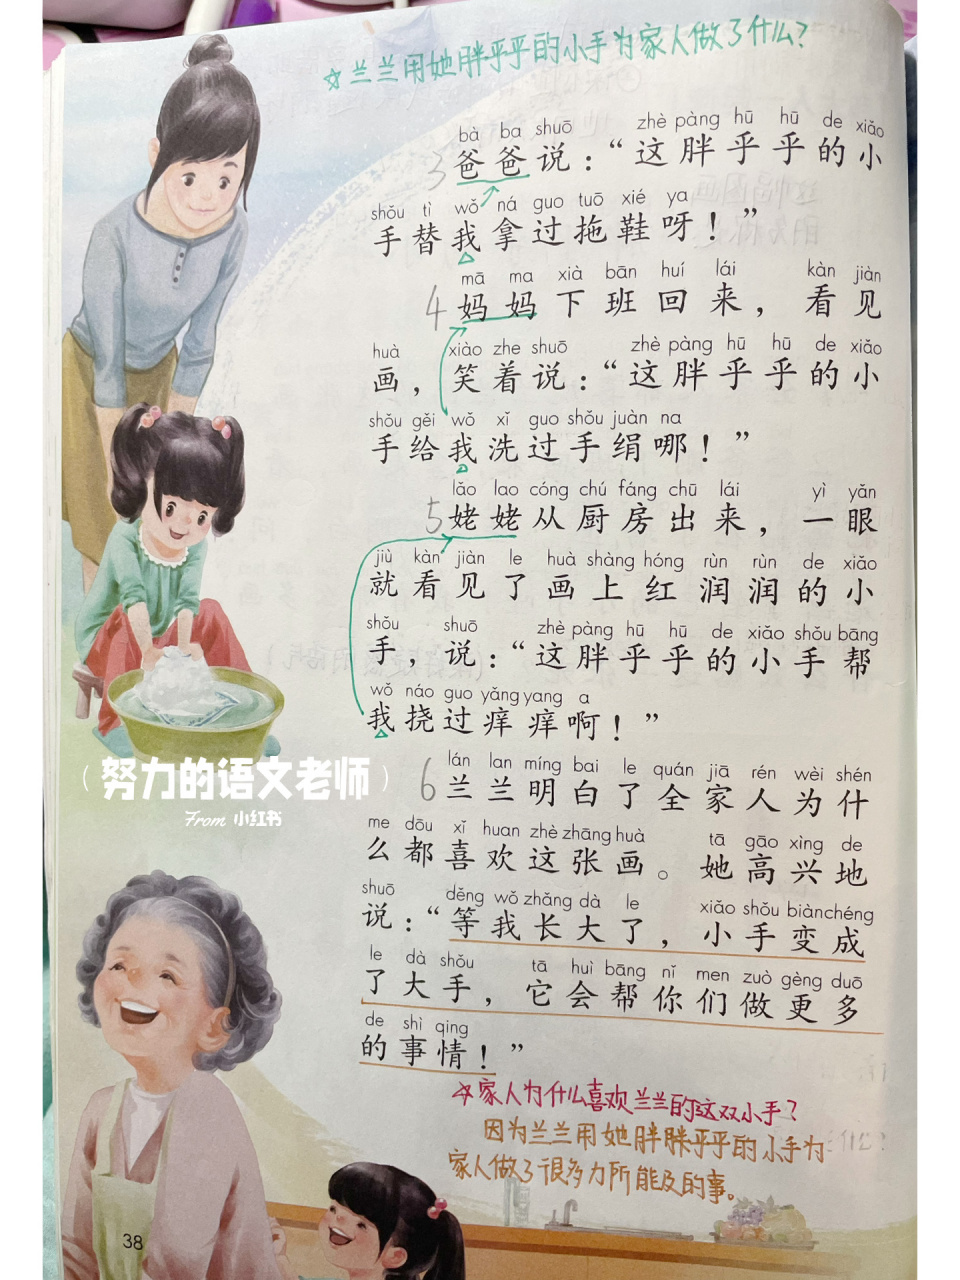 ☆兰兰用她胖乎乎的小手为家人做了什么？
bà ba shuō zhè pàng hū hū de xiǎo
3 爸爸说：“这胖乎乎的小
shǒu tì wǒ ná guo tuō xié ya
手替我拿过拖鞋呀！”
mā ma xià bān huí lái kàn jiàn
4 妈妈下班回来，看见
huà xiào zhe shuō zhè pàng hū hū de xiǎo
画，笑着说：“这胖乎乎的小
shǒu gěi wǒ xǐ guo shǒu juàn na
手给我洗过手绢哪！”
lǎo lao cóng chú fáng chū lái yì yǎn
5 姥姥从厨房出来，一眼
jiù kàn jiàn le huà shàng hóng rùn rùn de xiǎo
就看见了画上红润润的小
shǒu shuō zhè pàng hū hū de xiǎo shǒu bāng
手，说：“这胖乎乎的小手帮
wǒ náo guo yǎng yang a
我挠过痒痒啊！”
lán lan míng bai le quán jiā rén wèi shén
6 兰兰明白了全家人为什
me dōu xǐ huan zhè zhāng huà tā gāo xìng de
么都喜欢这张画。她高兴地
shuō děng wǒ zhǎng dà le xiǎo shǒu biàn chéng
说：“等我长大了，小手变成
le dà shǒu tā huì bāng nǐ men zuò gèng duō
了大手，它会帮你们做更多
de shì qing
的事情！”
☆家人为什么喜欢兰兰的这双小手？
因为兰兰用她胖胖乎乎的小手为
家人做了很多力所能及的事。
38
努力的语文老师
From 小红书